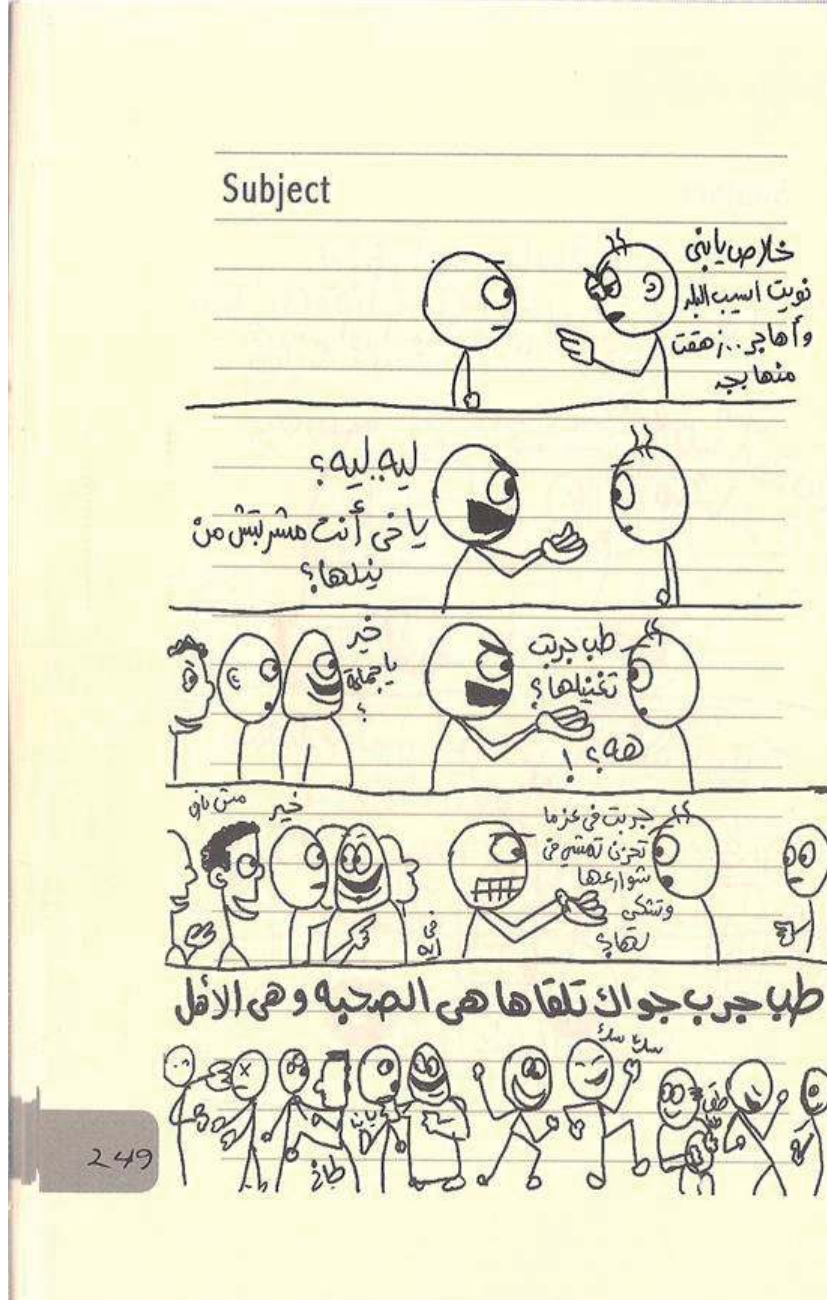 Subject
خلاص يابنى
نويت اسيب البلد
وأهاجر..زهقت
منها بجد
ليه..ليه؟
ياخى أنت مشربتش من
نيلها؟
طب جربت
تغنيلها؟
هه؟!
خير
ياجماعة
؟
جربت فى عز ما
تحزن تمشي فى
شوارعها
وتشكى
لها؟
خير
فى
إيه
طب جرب جواك تلقاها هى الصحبه وهى الأهل
سك سك
طاخ
249